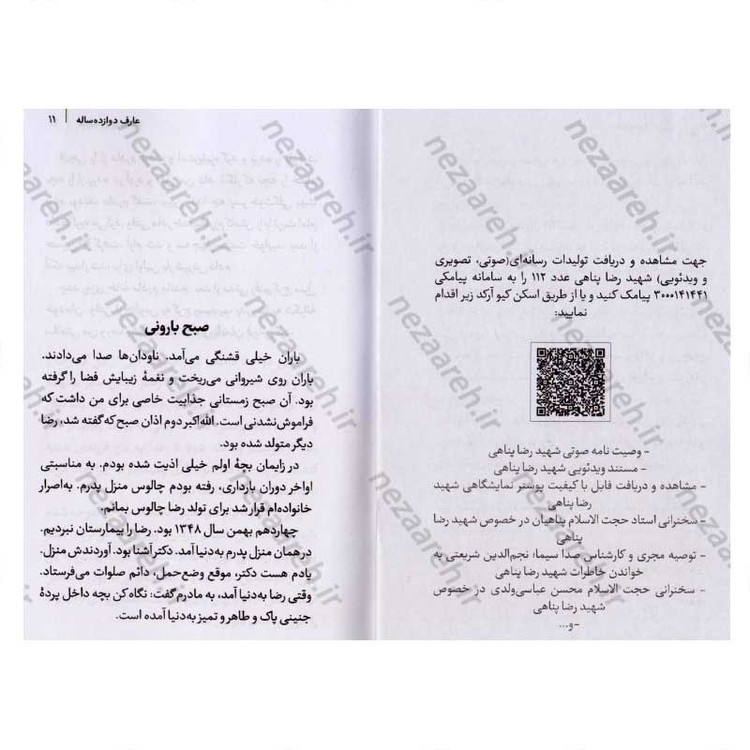 جهت مشاهده و دریافت تولیدات رسانه‌ای(صوتی، تصویری
و ویدئویی) شهید رضا پناهی عدد ۱۱۲ را به سامانه پیامکی
۳۰۰۰۱۴۱۴۴۱ پیامک کنید و یا از طریق اسکن کیو آرکد زیر اقدام
نمایید:
- وصیت نامه صوتی شهید رضا پناهی
- مستند ویدئویی شهید رضا پناهی
- مشاهده و دریافت فایل با کیفیت پوستر نمایشگاهی شهید
رضا پناهی
- سخنرانی استاد حجت الاسلام پناهیان در خصوص شهید رضا
پناهی
- توصیه مجری و کارشناس صدا سیما؛ نجم‌الدین شریعتی به
خواندن خاطرات شهید رضا پناهی
- سخنرانی حجت الاسلام محسن عباسی‌ولدی در خصوص
شهید رضا پناهی
-و...
عارف دوازده‌ساله | ۱۱
صبح بارونی
باران خیلی قشنگی می‌آمد. ناودان‌ها صدا می‌دادند.
باران روی شیروانی می‌ریخت و نغمهٔ زیبایش فضا را گرفته
بود. آن صبح زمستانی جذابیت خاصی برای من داشت که
فراموش‌نشدنی است. الله‌اکبر دوم اذان صبح که گفته شد، رضا
دیگر متولد شده بود.
در زایمان بچهٔ اولم خیلی اذیت شده بودم. به مناسبتی
اواخر دوران بارداری، رفته بودم چالوس منزل پدرم. به‌اصرار
خانواده‌ام قرار شد برای تولد رضا چالوس بمانم.
چهاردهم بهمن سال ۱۳۴۸ بود. رضا را بیمارستان نبردیم.
در همان منزل پدرم به‌دنیا آمد. دکتر آشنا بود. آوردندش منزل.
یادم هست دکتر، موقع وضع‌حمل، دائم صلوات می‌فرستاد.
وقتی رضا به‌دنیا آمد، به مادرم گفت: نگاه کن بچه داخل پردهٔ
جنینی پاک و طاهر و تمیز به‌دنیا آمده است.
nezaareh.ir
nezaareh.ir
nezaareh.ir
nezaareh.ir
nezaareh.ir
nezaareh.ir
nezaareh.ir
nezaareh.ir
nezaareh.ir